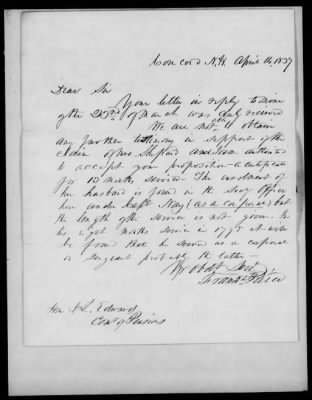 Concord N.H. April 14, 1837
Dear Sir
Your letter in reply to mine
of the 22nd of March was duly received
We are not able to obtain
any further testimony in support of the
claim of Mrs Shepherd and I am authorized
to accept your proposition - a certificate
for 13 months service. The enrolment of
her husband is found in the Secy Office
here under Capt. (as a corporal) but
the length of the service is not given. In
the eight months service in 1775 it will
be found that he served as a corporal
or sergeant probably the latter
Yr obdt Servt
Frank: Pierce
Hon J. L. Edwards
Comr of Pensions